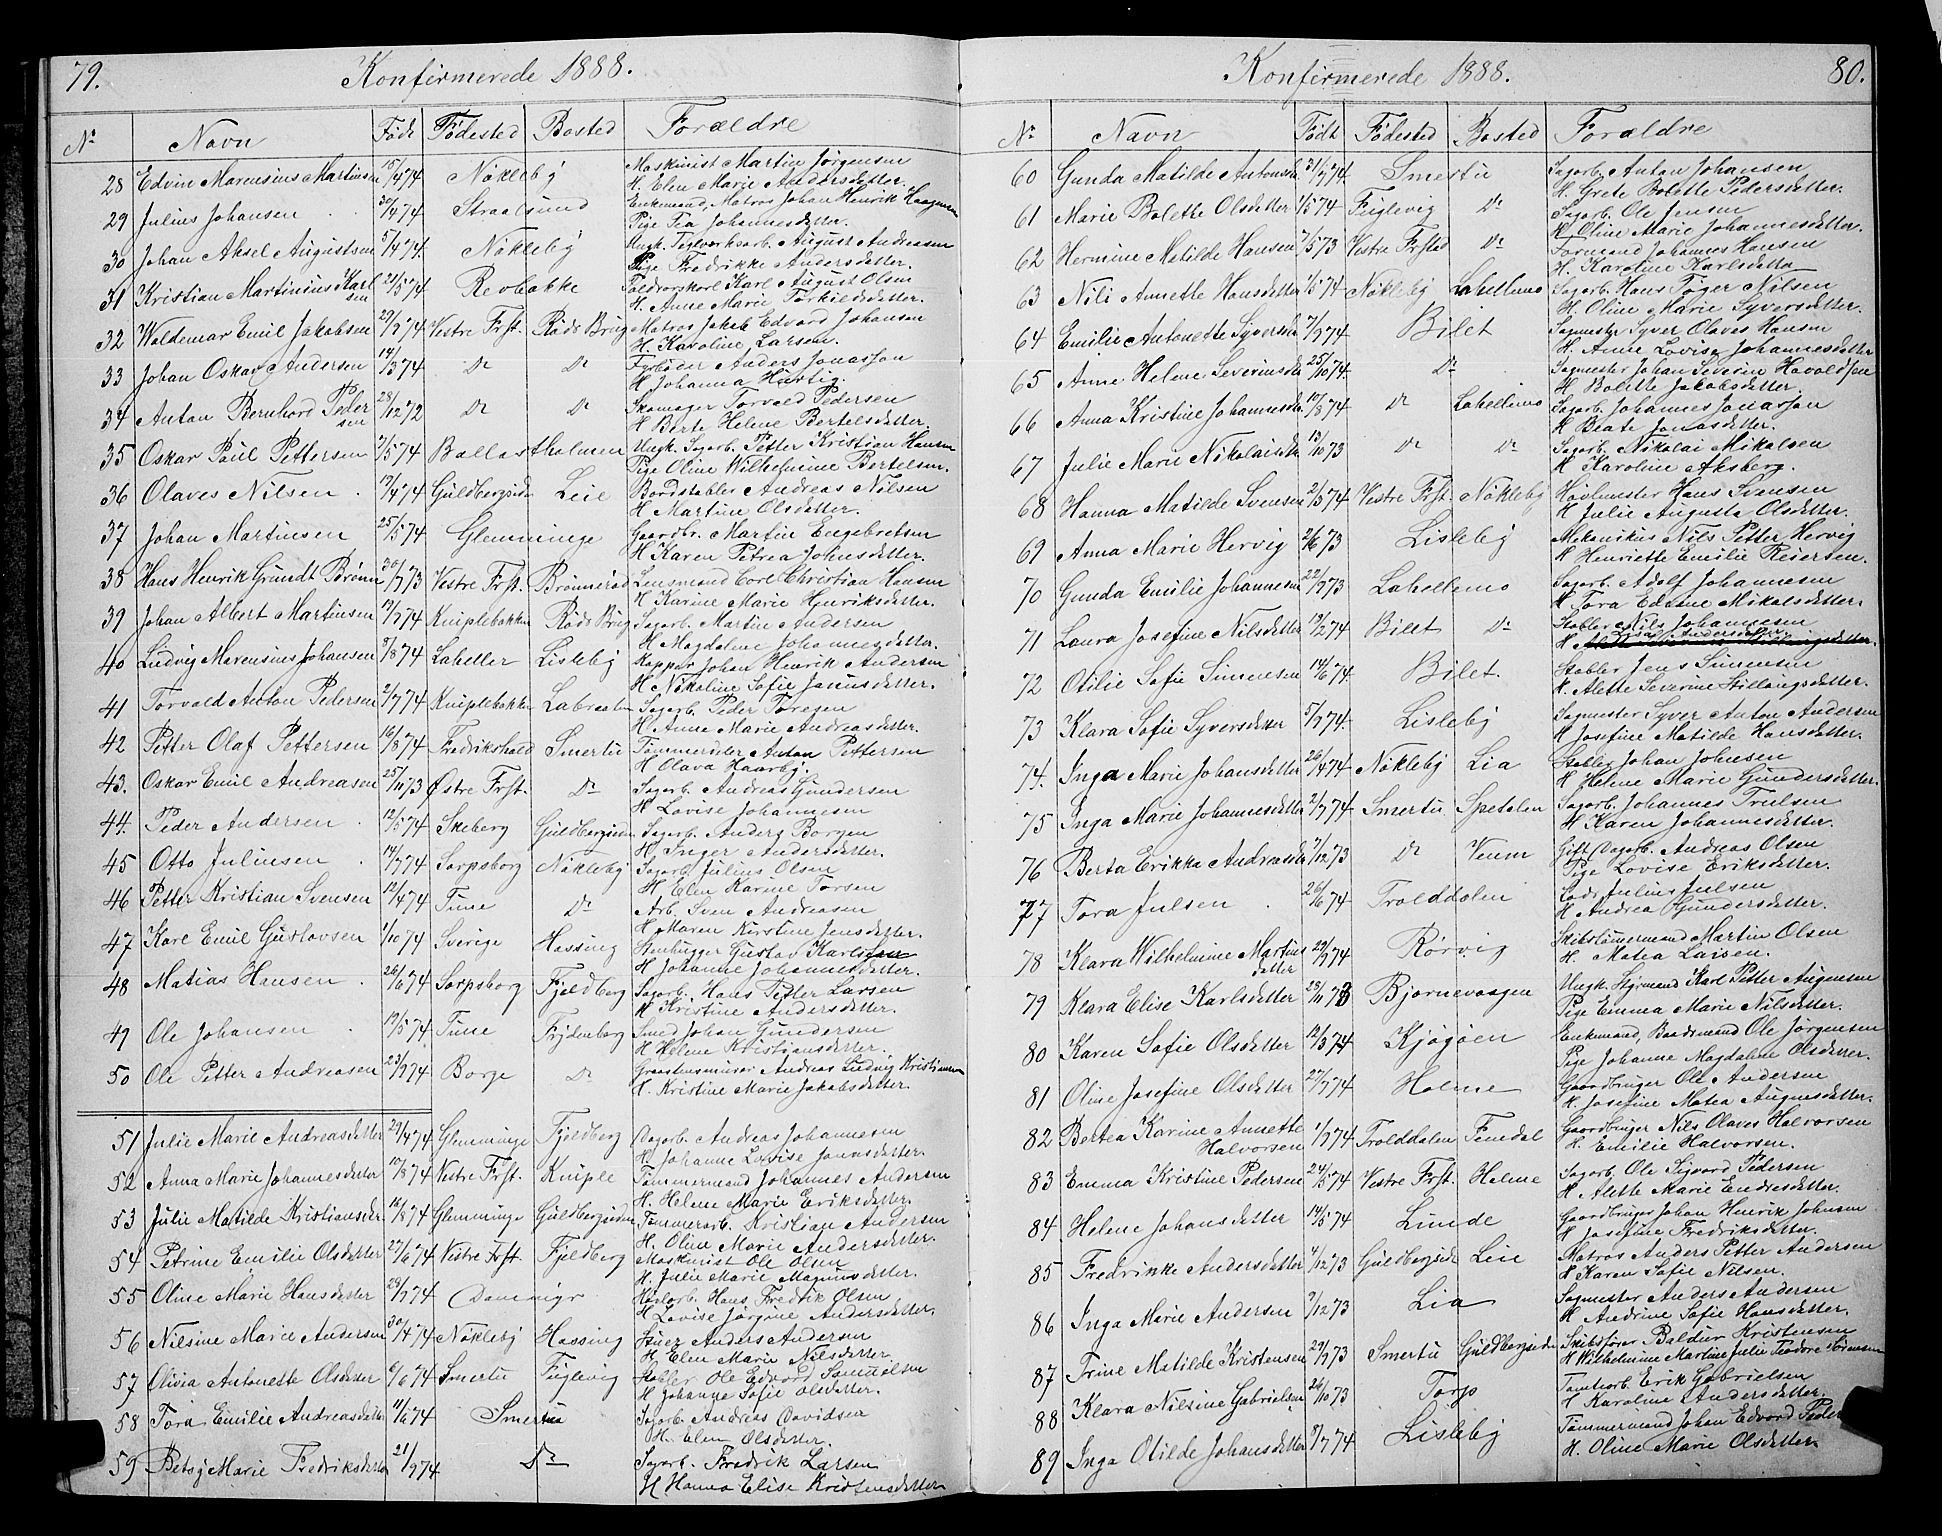 79. Konfirmerede 1888.
Nr Navn Født Fødested Bosted Forældre
28 Edvin Marensius Martinsen 15/4 74 Nökleby Maskinist Martin Jörgensen
H. Elen Marie Andersdatter.
29 Julius Johansen 30/4 74 Straalsund Enkemand, Matros Johan Henrik Haagensen
Pige Tea Johannesdatter.
30 Johan Aksel Augustsen 5/4 74. Nökleby Ungk. Teglverksarb. August Andreasen
Pige Fredrikke Andersdatter.
31 Kristian Martinius Karlsen 21/5 74 Revbakke Karl August Olsen
H. Anne Marie Torkildsdatter.
32 Waldemar Emil Jakobsen 22/2 74 Vestre Frst. Råds Brug Matros Jakob Edvard Johansen
H. Karoline Larsen.
33 Johan Oskar Andersen 14/3 74 Do Do Fyrböder Anders Jonassen
H Johanna Hartig.
34 Anton Bernhard Pedersen 28/12 72 Do Do Skomager Torvald Pedersen
H Berte Helene Bertelsdatter.
35 Oskar Paul Pettersen 7/5 74 Ballastholmen Ungk. Sagarb. Petter Kristian Hansen
Pige Oline Wilhelmine Bertelsen.
36 Olaves Nilsen 19/4 74 Guldbergsiden Leie Bordstabler Andreas Nilsen
H Martine Olsdatter.
37 Johan Martinsen 25/5 74 Glemminge Gaardbr. Martin Engebretsen
H Karen Petrea Johnsdatter.
38 Hans Henrik Grundt Brönn 30/7 73 Vestre Frst. Brönnerød Lensmand Carl Christian Hansen
H Karine Marie Henriksdatter.
39 Johan Albert Martinsen 19/2 74 Kniplebakken Råds Brug Sagarb. Martin Andersen
H Magdalene Johannesdatter.
40 Ludvig Marensius Johansen 3/8 74 Laheller Lisleby Kapper Johan Henrik Andersen
H Nikoline Sofie Jonnsdatter.
41 Torvald Anton Pedersen 2/7 74 Kniplebakken Labraaten Sagarb. Peder Torgen
H Anne Marie Andreasdatter.
42 Petter Olaf Pettersen 16/8 74 Fredrikshald Smertu Tömmerdeler Anton Pettersen
H Olava Haarby.
43. Oskar Emil Andreasen 25/11 73 Østre Frst. Do Sagarb. Andreas Gundersen
H Lovise Johannesen
44. Peder Andersen 12/5 74 Skeberg Guldbergsiden Sagarb. Anders Borgen
H. Inger Andersdatter.
45 Otto Juliusen 14/7 74 Sarpsborg Nökleby Sagarb. Julius Olsen
H Elen Karine Torsen
46 Petter Kristian Svensen 12/4 74 Tune Do Arb. Sven Andreasen
H. Maren Kirstine Jensdatter.
47 Karl Emil Gustavsen 1/10 74 Sverige Hassing Stenhugger Gustav Karlsson
H Johanne Johannesdatter.
48 Matias Hansen 26/6 74 Sarpsborg Fjeldberg Sagarb. Hans Petter Larsen
H Kristine Andersdatter.
49 Ole Johansen 19/5 74 Tune Frydenborg Smed Johan Gundersen
H Helene Kristiansdatter.
50 Ole Petter Andreasen 23/2 74 Borge Do Graastensmurer Andreas Ludvig Kristiansen
H. Kristine Marie Jakobsdatter.
51 Julie Marie Andreasdatter 29/4 74 Glemminge Fjeldberg Dagarb. Andreas Johannesen
H. Johanne Lovise Jonnsdatter.
52 Anna Marie Johannesdatter 10/8 74 Vestre Frst. Kniple Tömmermand Johannes Andersen
H. Helene Marie Eriksdatter.
53 Julie Matilde Kristiansdtr 16/8 74 Glemminge Guldbergsiden Tömmerarb. Kristian Andersen
H. Oline Marie Andersdatter.
54 Petrine Emilie Olsdatter 27/6 74 Vestre Frst. Fjeldberg Maskinist Ole Olsen
H. Julie Marie Magnusdatter.
55 Oline Marie Hansdatter 29/7 74 Dammyr Hövlarb. Hans Fredrik Olsen
H Lovise Jörgine Andersdatter.
56 Nilsine Marie Andersen 30/4 74 Nökleby Hassing Stuer Anders Andersen
H. Elen Marie Nilsdatter
57 Olivia Antonette Olsdatter 6/6 74 Smertu Fuglevig Stabler Ole Edvard Samuelsen
H Johanne Sofie Olsdatter.
58 Tora Emilie Andreasdatter 11/6 74 Smertu Sagarb. Andreas Davidsen
H. Elen Olsdatter.
59 Betsy Marie Fredriksdatter 21/2 74 Do Sagarb. Fredrik Larsen
H Hanna Elise Kristensdatter
Konfirmerede 1888. 80.
Nr Navn Født Fødested Bosted Forældre
60 Gunda Matilde Antonsdtr 31/7 74 Smertu Sagarb. Anton Johansen
H. Grete Bolette Pedersdatter.
61 Marie Bolette Olsdatter 1/5 74 Fuglevig Do Sagarb. Ole Jensen
H Oline Marie Johannesdatter.
62 Hermine Matilde Hansen 7/5 73 Vestre Frstad Do Formand Johannes Hansen
H. Karoline Karlsdatter
63 Nili Annette Hansdatter 1/5 74 Nökleby Lahellemo Sagarb. Hans Töger Nilsen
H. Oline Marie Syversdatter.
64 Emilie Antonette Syversdtr 7/2 74 Bilet Sagmester Syver Olaves Hansen
H. Anne Lovise Johannesdatter
65 Anne Helene Severinsdtr 25/10 74. Do Sagmester Johan Severin Havoldsen
H Bolette Jakobsdatter
66 Anna Kristine Johannesdtr 10/8 74 Do Lahellemo Sagarb. Johannes Jonassen
H Beate Jonasdatter.
67 Julie Marie Nikolaisdtr 13/10 73 Do Do Sagarb. Nikolai Mikalsen
H Karoline Aksberg.
68 Hanna Matilde Svensen 2/5 74 Vestre Frst. Nökleby Hövlmester Hans Svensen
H Julie Augusta Olsdatter.
69 Anna Marie Hervig 2/6 73 Lisleby Mekanikus Nils Petter Hervig
H Henriette Emilie Reiersen.
70 Gunda Emilie Johannesen 22/7 73 Lahellemo Sagarb. Adolf Johannesen
H Tora Edine Mikalsdatter.
71 Laura Josefine Nilsdatter 19/2 74 Bilet Do Stabler Nils Johannesen
H Andersdatter
72 Otilie Sofie Simensen 14/6 74 Bilet. Stabler Jens Simensen
H. Alette Severine Stillaugsdatter.
73 Klara Sofie Syversdatter 5/7 74. Lisleby Sagmester Syver Anton Andersen
H Josefine Matilde Hansdatter.
74. Inga Marie Johansdatter 26/4 74 Nökleby Lia Stabler Johan Johnsen
H Helene Marie Gundersdatter.
75 Inga Marie Johannesdatter 2/7 74 Smertu Spetalen Sagarb. Johannes Trulsen
H Karen Johannesdatter.
76 Berta Erikka Andreasdtr 7/12 73 Do Veum Gift Dagarb. Andreas Olsen
Pige Lovise Eriksdatter.
77 Tora Julsen 26/6 74 Trolddalen Lods Julius Julsen
H Andrea Gundersdatter.
78 Klara Wilhelmine Martinsdatter 29/7 74 Rörvig Skibstömermand Martin Olsen
H. Matea Larsen.
79 Klara Elise Karlsdatter 23/11 73 Bjørnevaagen Ungk. Styrmand Karl Petter Augensen
Pige Emma Marie Nilsdatter.
80 Karen Sofie Olsdatter 12/3 74 Kjøgøen Enkemand, Baadsmand Ole Jørgensen
Pige Johanne Magdalene Olsdatter.
81 Oline Josefine Olsdatter 27/7 74 Holme Gaardbruger Ole Andersen
H. Josefine Matea Augensdatter.
82 Bertea Karine Annette Halvorsen 1/7 74 Trolddalen Femdal Gaardbruger Nils Olaves Halvorsen
H. Emilie Halvorsen.
83 Emma Kristine Pedersen 24/5 74 Vestre Frst. Holme Sagarb. Ole Sigvard Pedersen
H. Alette Marie Endresdatter.
84 Helene Johansdatter 14/5 74 Lunde Gaardbruger Johan Henrik Johnsen
H Josefine Fredriksdatter.
85 Fredrikke Andersdatter 4/12 73 Guldbergsid Leie Matros Anders Petter Andersen
H Karen Sofie Nilsen.
86 Inga Marie Andersen 7/12 73 Lia Sagmester Anders Andersen
H Andrine Sofie Hansdatter.
87 Trine Matilde Kristensen 29/7 73 Smertu Guldbergsiden Skibsförer Baldur Kristensen
H Wilhelmine Martine Julie Teodore Sörensen
88 Klara Nilsine Gabrielsen 26/10 73 Torp Tomtearb. Erik Gabrielsen
H Karoline Andersdatter.
89 Inga Otilde Johansdatter 9/7 74 Lisleby Tömmermand Johan Edvard
H. Oline Marie Olsdatter